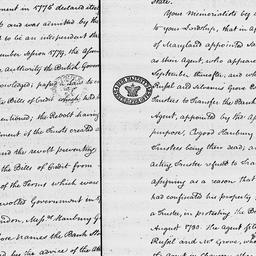 ment in 1776 declared itse
and was admitted by the
to be an independent Sta
ember 1779, the afore
authority the British Gover
nowledged, passed a law to c
the Bills of Credit which had
mentioned; the Revolt having
ment of the Trusts created a
and the revolt preventing
the Bills of Credit from
of the Terms which was
evolted Government in
ondon, Messrs Hanbury
hose names the Bank Sto
by the advice of the
State.
Your Memorialists by
to your Lordship, that in Ap
of Maryland appointed Sa
their Agent, who appeare
September thereafter, and wh
Russel and Silvanus Grove
Trustees to Transfer the Bank
Agent, appointed by the Ap
purpose; Osgood Hanbury
Trustees being then dead, a
acting Trustees refused to Tran
assigning as a reason that
had confiscated his property
a Trustee, in protesting the B
August 1780. The Agent
Russel and Mr Grove, who